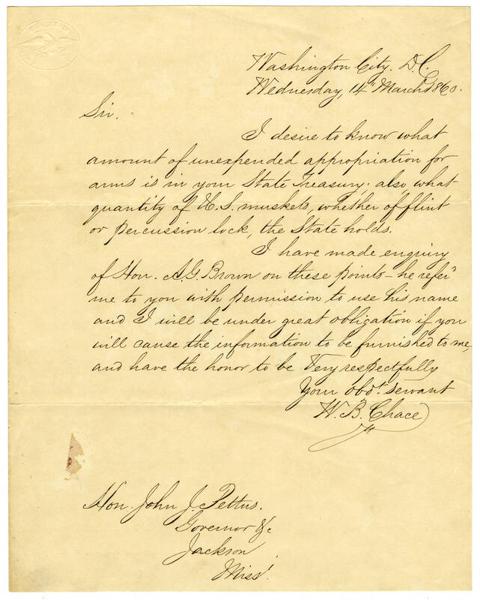 Washington City. D.C.
Wednesday, 14" March 1860.
Sir.
I desire to know what
amount of unexpended appropriation for
arms is in your State Treasury; also, what
quantity of U.S. muskets, whether of flint
or percussion lock, the State holds.
I have made enquiry
of Hon. A.G. Brown on these points – he refer'd
me to you with permission to use his name
and I will be under great obligation if you
will cause the information to be furnished to me,
and have the honor to be Very respectfully
Your obdt. servant
W. B. Chace
Hon. John J. Pettus.
Governor &c.
Jackson
Miss'.